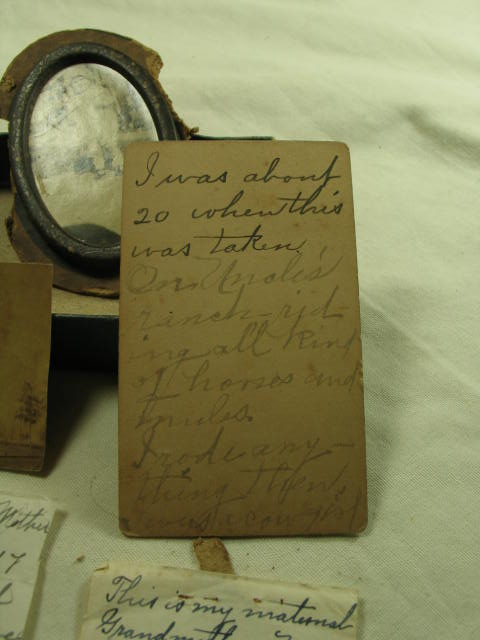 I was about
20 when this
was taken
On Uncle's
ranch rid-
ing all kind
of horses and
mules.
I rode any-
thing then
I was a cow girl
Mother
17
This is my maternal
Grandmoth